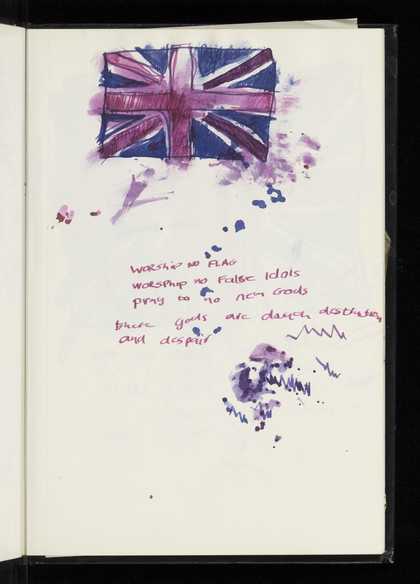 WORSHIP NO FLAG
WORSPHIP no False Idols
pray to no new Gods
gods are death destruction
and despair